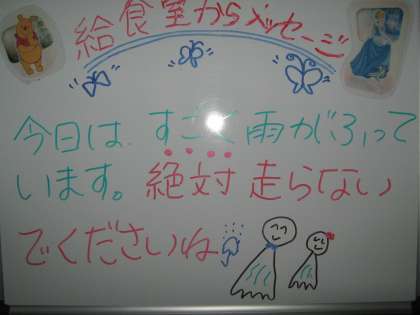 給食室からメッセージ
今日は、すごく雨がふって
います。絶対走らない
でくださいね